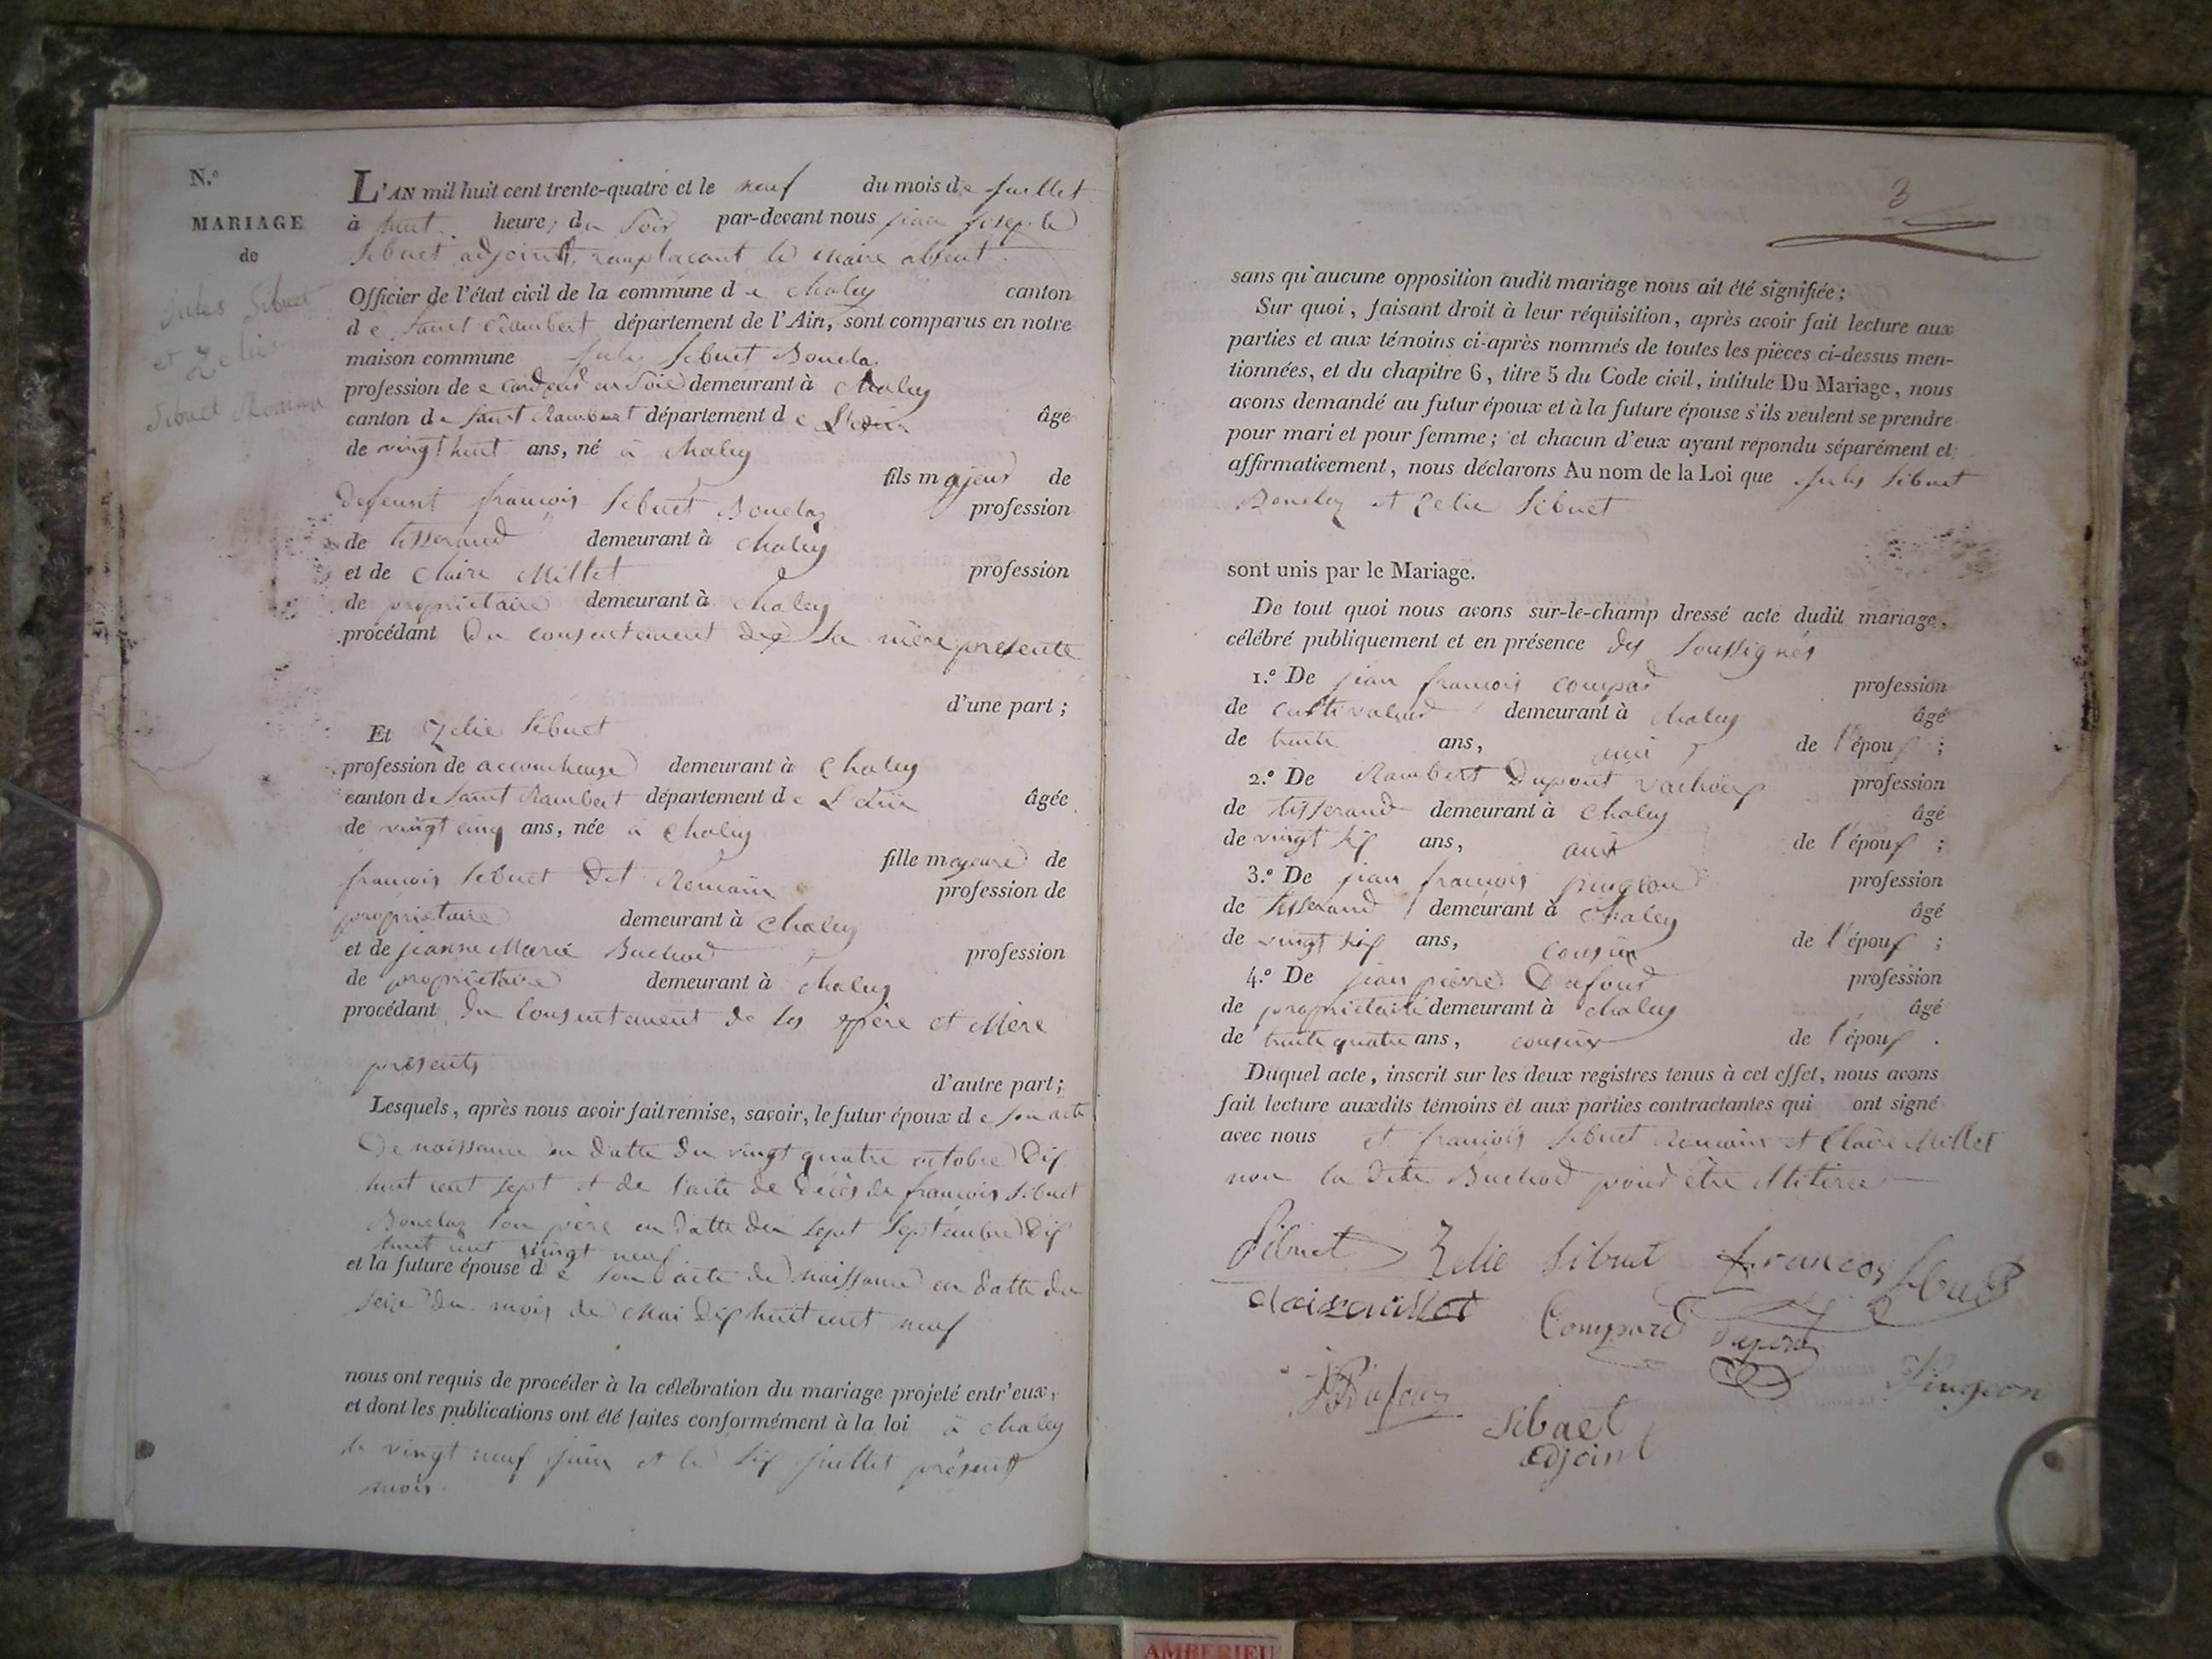 N.º
MARIAGE
de
Jules Sibuet
et Zelie
Sibuet Romain
L'AN mil huit cent trente-quatre et le neuf du mois de juillet
à huit heure, du soir par-devant nous jean joseph
Sibuet adjoint, remplacant le maire absent.
Officier de l'état civil de la commune de chaley canton
de saint Rambert département de l'Ain, sont comparus en notre
maison commune Jules Sibuet Bouclaz
profession de cardeur en soie demeurant à chaley
canton de saint Rambert département de L'ain âgé
de vingt huit ans, né à chaley
fils majeur de
defeunt francois Sibuet Bouclaz profession
de tisserand demeurant à chaley
et de Claire Millet profession
de proprietaire demeurant à chaley
procédant Du consentement de sa mère presente
d'une part ;
Et Zelie Sibuet
profession de accoucheuse demeurant à Chaley
canton de saint Rambert département de L'ain âgée
de vingt cinq ans, née à Chaley
fille majeure de
francois Sibuet Dit Romain profession de
propriétaire demeurant à chaley
et de jeanne Marie Buchod profession
de propriétaire demeurant à chaley
procédant Du Consentement de ses père et Mère
presents
d'autre part ;
Lesquels, après nous avoir fait remise, savoir, le futur époux de son acte
De naissance en datte du vingt quatre octobre Dix
huit cent sept et de l'acte de décès de francois Sibuet
Bouclaz son père en datte du sept Septembre Dix
huit cent vingt neuf
et la future épouse de son acte de naissance en datte du
seize du mois de Mai Dix huit cent neuf
nous ont requis de procéder à la célébration du mariage projeté entr'eux,
et dont les publications ont été faites conformément à la loi à chaley
le vingt neuf juin et le six juillet présent
mois.
3
sans qu'aucune opposition audit mariage nous ait été signifiée ;
Sur quoi, faisant droit à leur réquisition, après avoir fait lecture aux
parties et aux témoins ci-après nommés de toutes les pièces ci-dessus men-
tionnées, et du chapitre 6, titre 5 du Code civil, intitulé Du Mariage, nous
avons demandé au futur époux et à la future épouse s'ils veulent se prendre
pour mari et pour femme ; et chacun d'eux ayant répondu séparément et
affirmativement, nous déclarons Au nom de la Loi que Jules Sibuet
Bouclaz et Zelie Sibuet
sont unis par le Mariage.
De tout quoi nous avons sur-le-champ dressé acte dudit mariage,
célébré publiquement et en présence des soussignés
1.º De jean francois compard profession
de cultivateur demeurant à chaley âgé
de trente ans, ami de l'époux ;
2.º De Rambert Dupont profession
de tisserand demeurant à Chaley âgé
de vingt six ans, ami de l'époux ;
3.º De jean francois pingeon profession
de tisserand demeurant à Chaley âgé
de vingt six ans, cousin de l'époux ;
4.º De jean pierre Dufour profession
de proprietaire demeurant à chaley âgé
de trente quatre ans, cousin de l'époux .
Duquel acte, inscrit sur les deux registres tenus à cet effet, nous avons
fait lecture auxdits témoins et aux parties contractantes qui ont signé
avec nous et francois Sibuet Romain et Claire Millet
non la dite Buchod pour être illitérée
Sibuet Zelie Sibuet francois Sibuet
claire millet Compard Dupont
JP Dufour Pingeon
Sibuet
adjoint
AMBERIEU